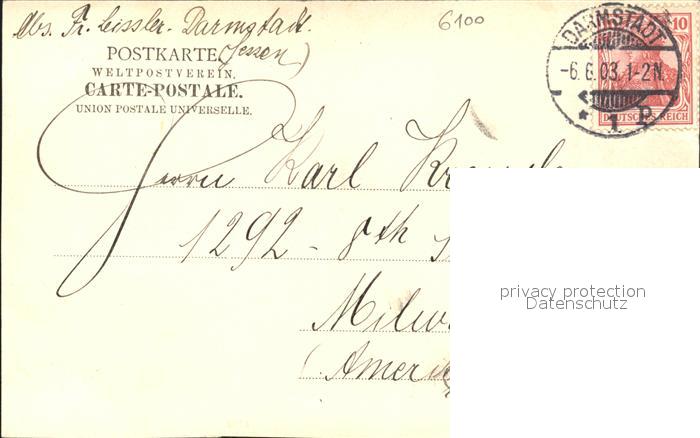 Abs. Fr. Leissler. Darmstadt.
(Hessen)
6100
POSTKARTE
WELTPOSTVEREIN.
CARTE-POSTALE.
UNION POSTALE UNIVERSELLE.
DARMSTADT
-6.6.03.1-2N.
* 1
10
DEUTSCHES REICH
Herrn Karl
1292 - 8th
Milw
(Amerik
privacy protection
Datenschutz